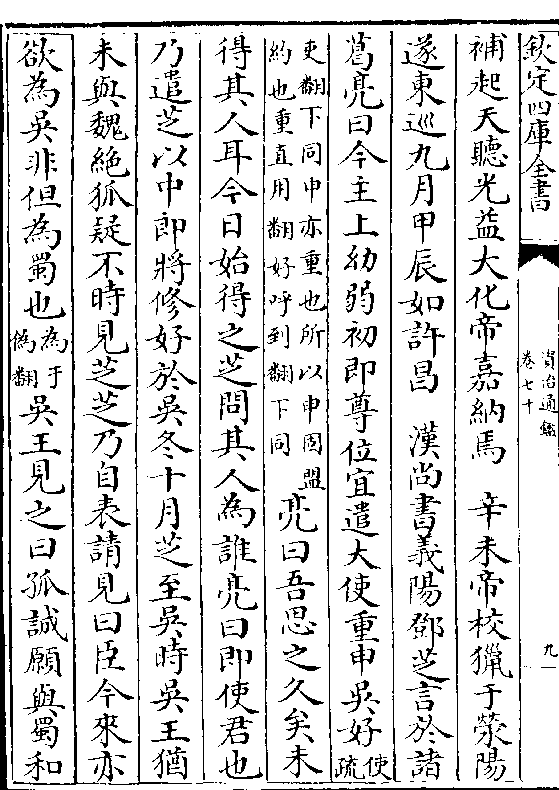 欽定四庫全書
資治通鑑
卷七十
九
補起天聽光益大化帝嘉納焉　辛未帝校獵于滎陽
遂東巡九月甲辰如許昌　漢尚書義陽鄧芝言於諸
葛亮曰今主上幼弱初即尊位宜遣大使重申吳好使疏
吏翻下同申亦重也所以申固盟
約也重直用翻好呼到翻下同
亮曰吾思之久矣未
得其人耳今日始得之芝問其人為誰亮曰即使君也
乃遣芝以中郎將修好於吳冬十月芝至吳時吳王猶
未與魏絕狐疑不時見芝芝乃自表請見曰臣今來亦
欲為吳非但為蜀也為于偽翻吳王見之曰孤誠願與蜀和